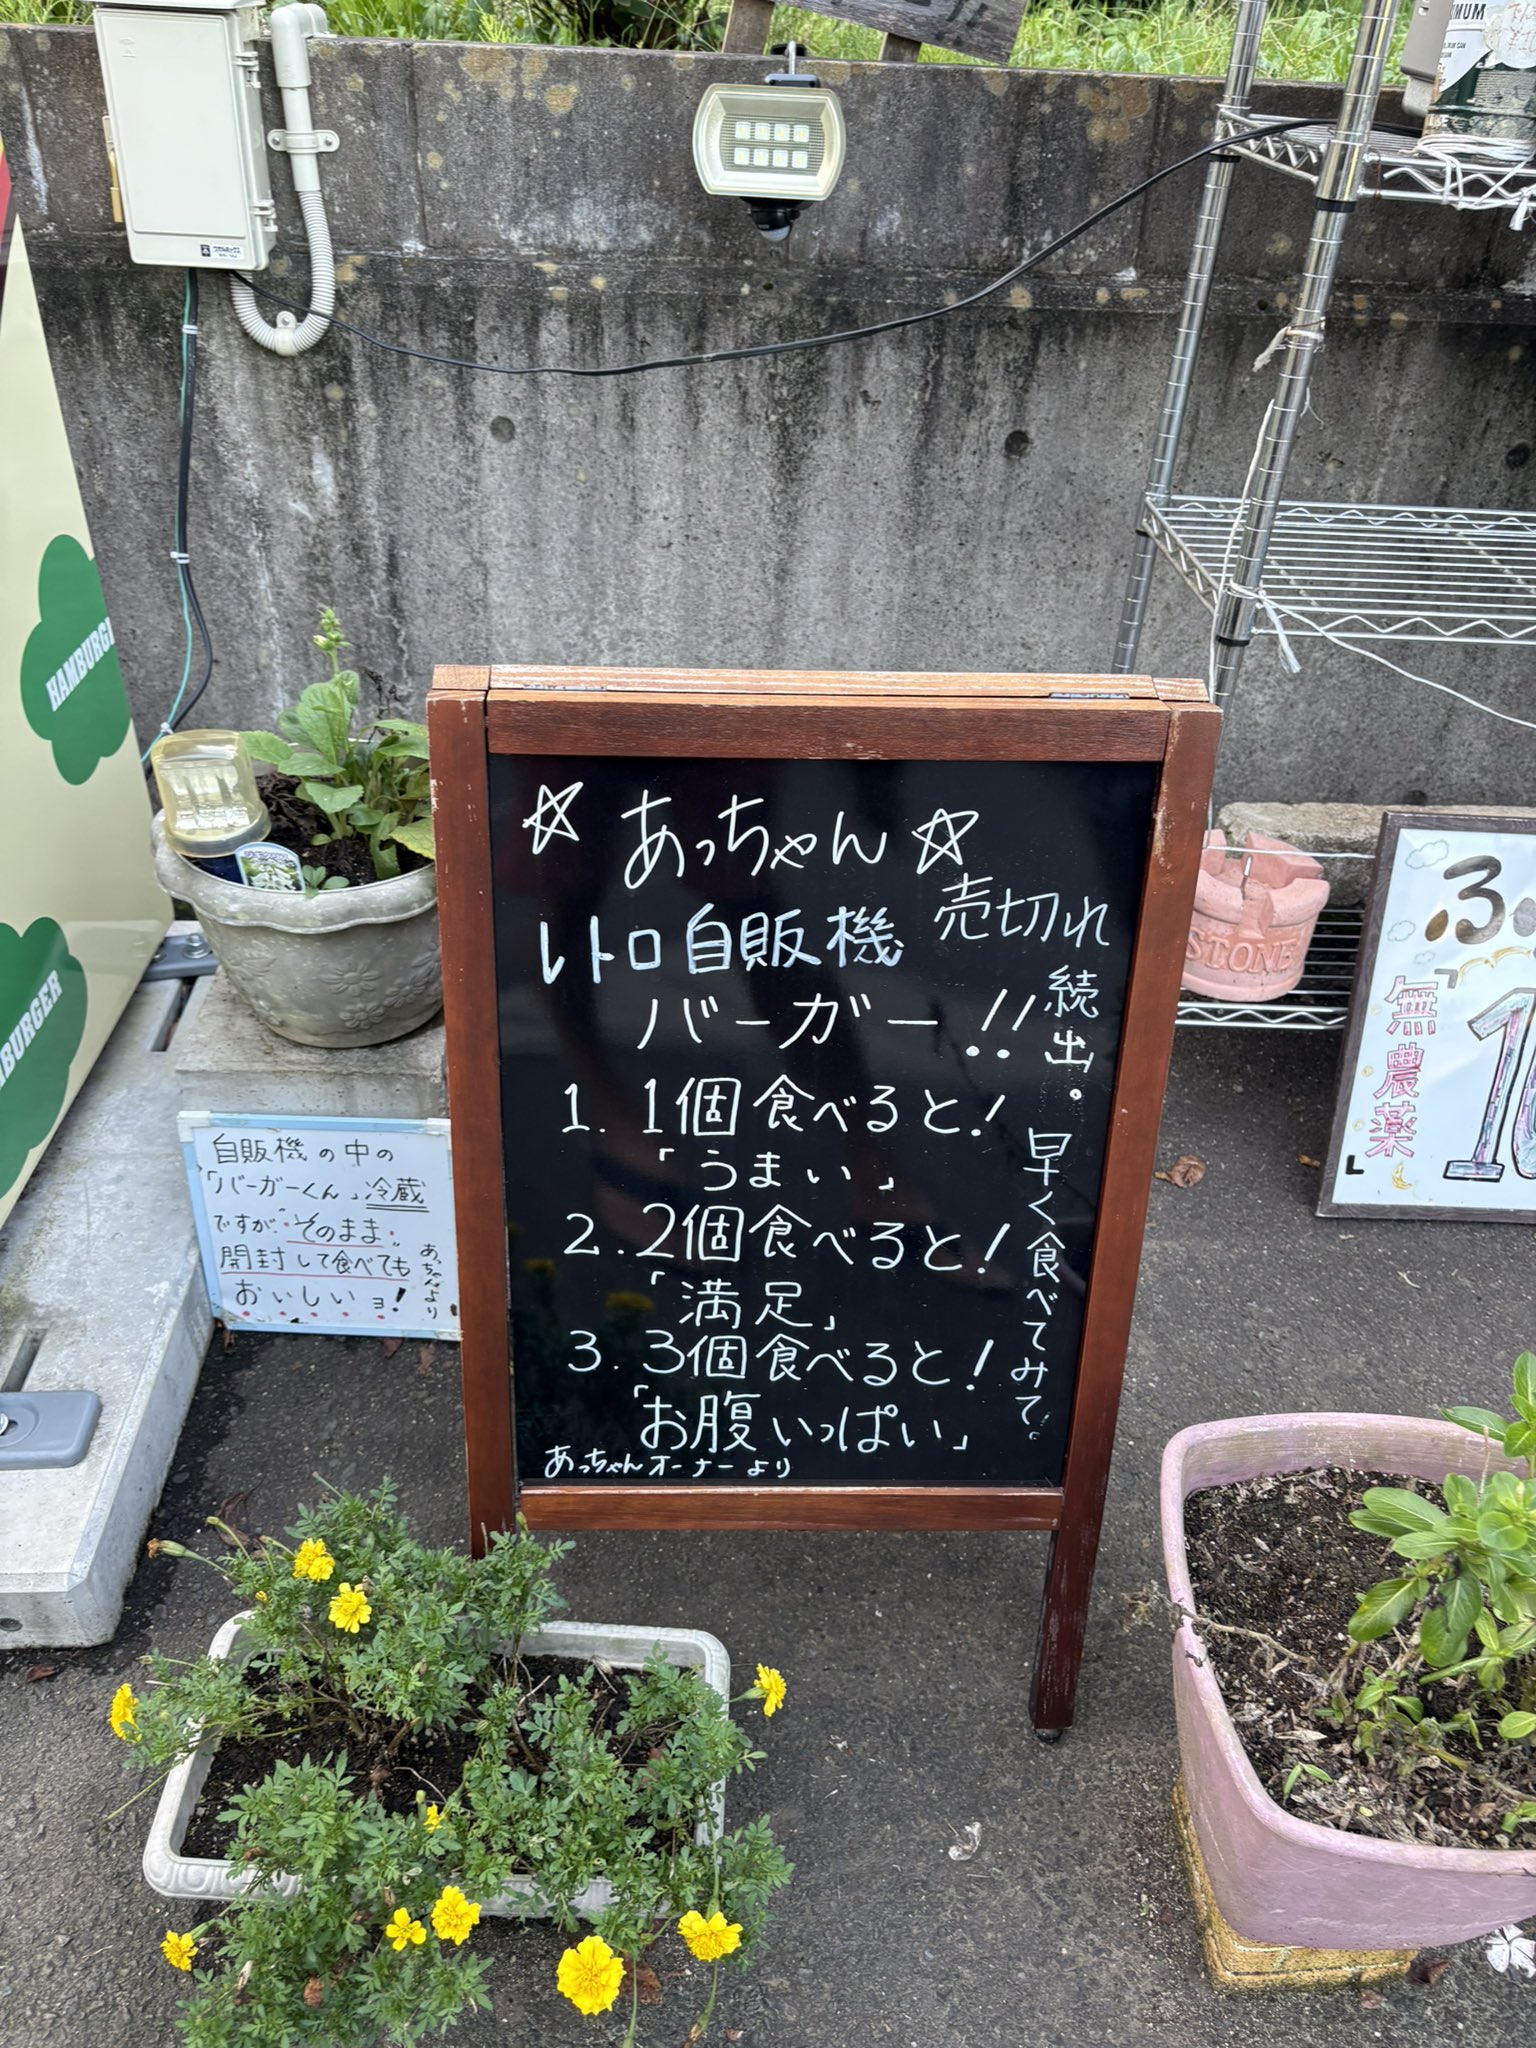 ☆あっちゃん☆
レトロ自販機
バーガー!!
売切れ
続出.早く食べてみて。
1. 1個食べると!
「うまい」
2. 2個食べると!
「満足」
3. 3個食べると!
「お腹いっぱい」
あっちゃんオーナーより
自販機の中の
「バーガーくん」冷蔵
ですが"そのまま"
開封して食べても
おいしいョ!
あっちゃんより
HAMBURG
BURGER
STONE
「無農薬」